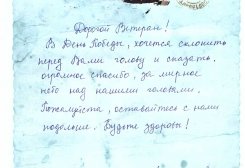 Дорогой Ветеран!
В День Победы, хочется склонить
перед Вами голову и сказать,
огромное спасибо, за мирное
небо над нашими головами.
Пожалуйста, оставайтесь с нами
подольше. Будьте здоровы!